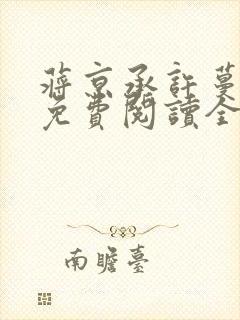 蔣京承許蔓
免費閱讀全
南瞻臺